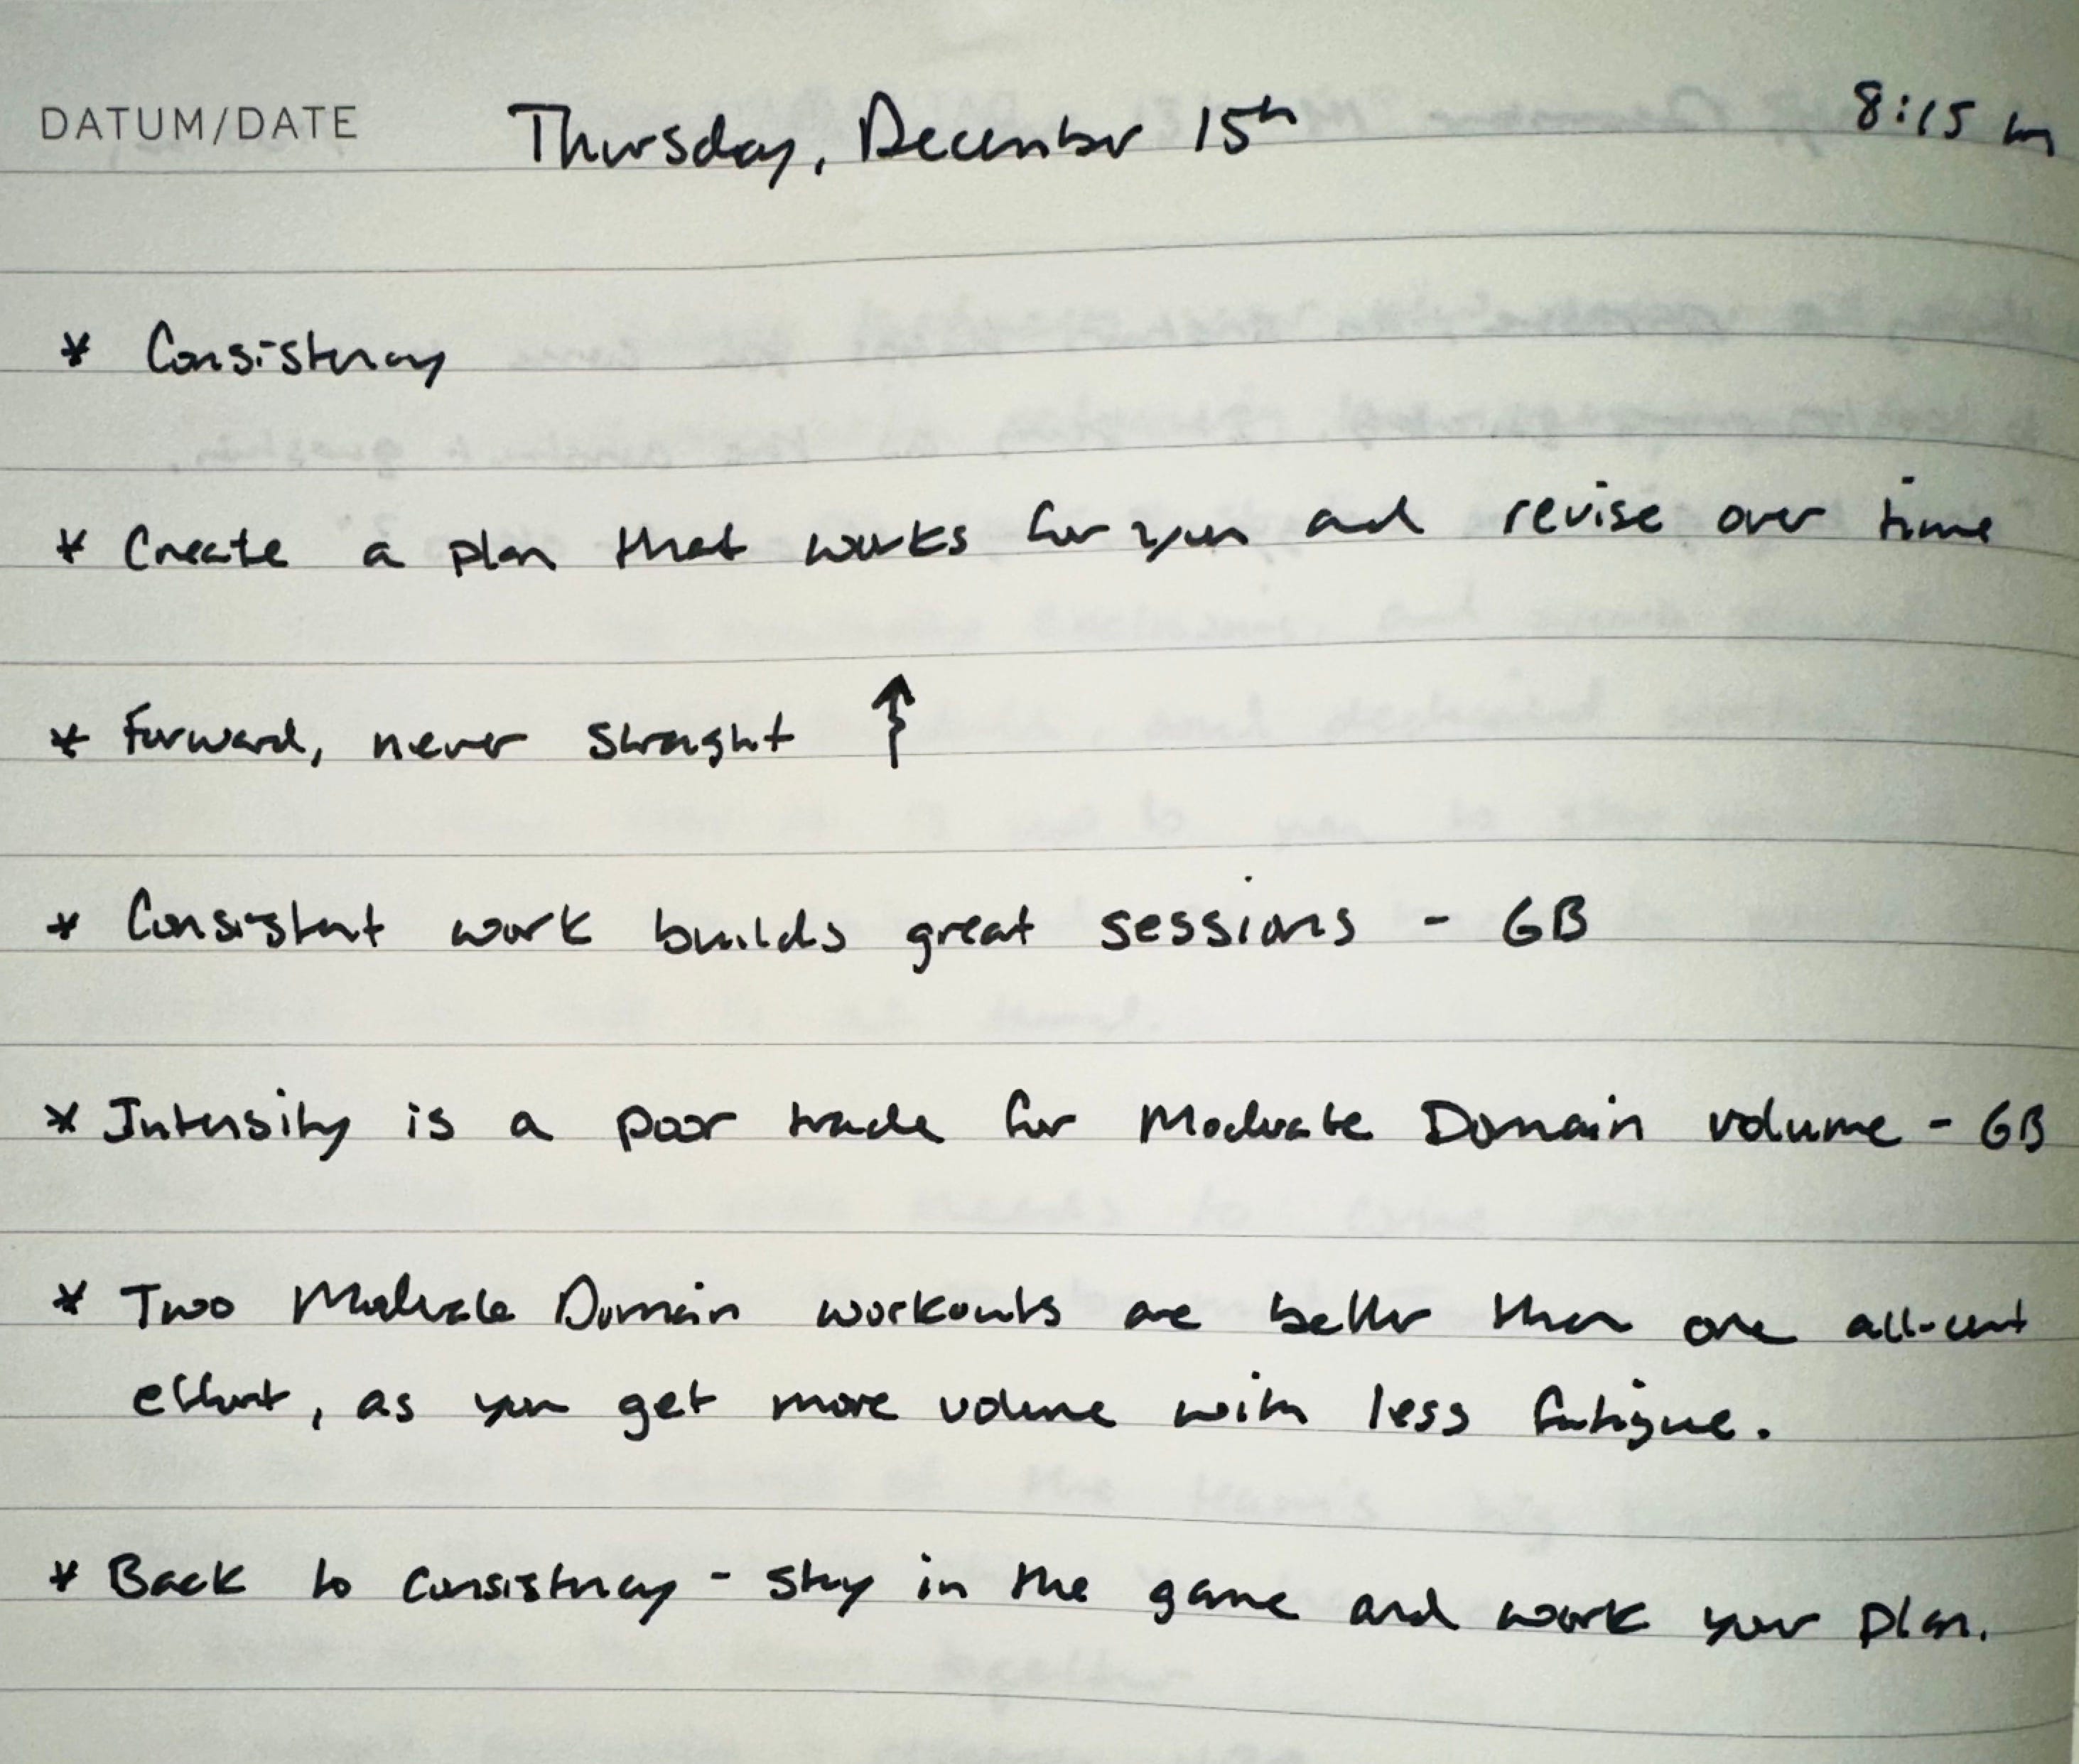 DATUM/DATE Thursday, December 15th 8:15
* Consistency
* Create a plan that works for you and revise over time
* Forward, never straight ↑
* Consistent work builds great sessions - GB
* Intensity is a poor trade for Moderate Domain volume - GB
* Two Moderate Domain workouts are better than one all-out
effort, as you get more volume with less fatigue.
* Back to consistency - stay in the game and work your plan.